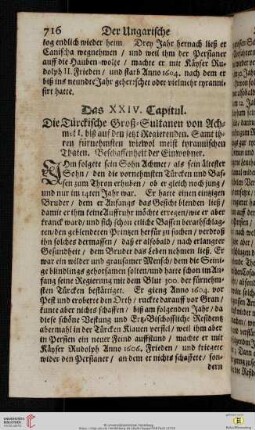 716 Der Ungarische
zog endlich wieder heim. Drey Jahr hernach ließ er
Canischa wegnehmen / und weil ihm der Persianer
auff die Hauben wolte / machte er mit Käyser Ru-
dolph II. Frieden / und starb Anno 1604. nach dem er
biß ins neundte Jahr geherrschet oder vielmehr tyranni-
siret hatte.
Das XXIV. Capitul.
Die Türckische Groß-Sultanen von Ach-
met I. biß auff den jetzt Regierenden. Samt ih-
ren fürnehmsten wiewol meist tyrannischen
Thaten. Beschaffenheit der Einwohner.
Ihm folgete sein Sohn Achmet / als sein ältester
Sohn / den die vornehmsten Türcken und Bas-
sen zum Thron erhuben / ob er gleich noch jung /
und nur im 14ten Jahr war. Er hatte einen eintzigen
Bruder / dem er Anfangs das Gesicht blenden ließ /
damit er ihm keine Auffruhr möchte erregen / wie er aber
kranck ward / und sich schon etliche Bassen berathschlag-
ten / den geblendeten Printzen herfür zu suchen / verdroß
ihn solches dermassen / daß er alsobald / nach erlangter
Gesundheit / dem Bruder das Leben nehmen ließ. Er
war ein wilder und grausamer Mensch / dem die Seini-
ge blindlings gehorsamen solten / und hatte schon im An-
fang seine Regierung mit dem Blut 300. der fürnehm-
sten Türcken bestättiget. Er gieng Anno 1604. vor
Pest und eroberte den Orth / ruckte darauff vor Gran /
kunte aber nichts schaffen / biß am folgenden Jahr / da
diese schöne Vestung und Ertz-Bischoffliche Residentz
abermahl in der Türcken Klauen verfiel / weil ihm aber
in Persien ein neuer Feind auffstund / machte er mit
Käyser Rudolph Anno 1606. Frieden / und kriegete
wider den Persianer / an dem er nichts schaffete / son-
dern